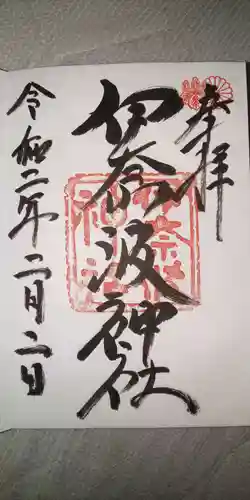 奉拝
伊奈波神社
令和二年二月二日